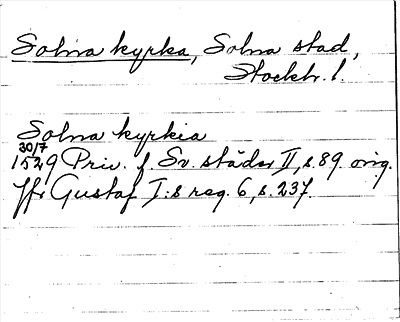 Solna kyrka, Solna stad,
Stockh. l.
Solna kyrkia
30/7
1529 Priv. f. Sv. städer II, s. 89. orig.
Jfr Gustaf I:s reg. 6, s. 237.